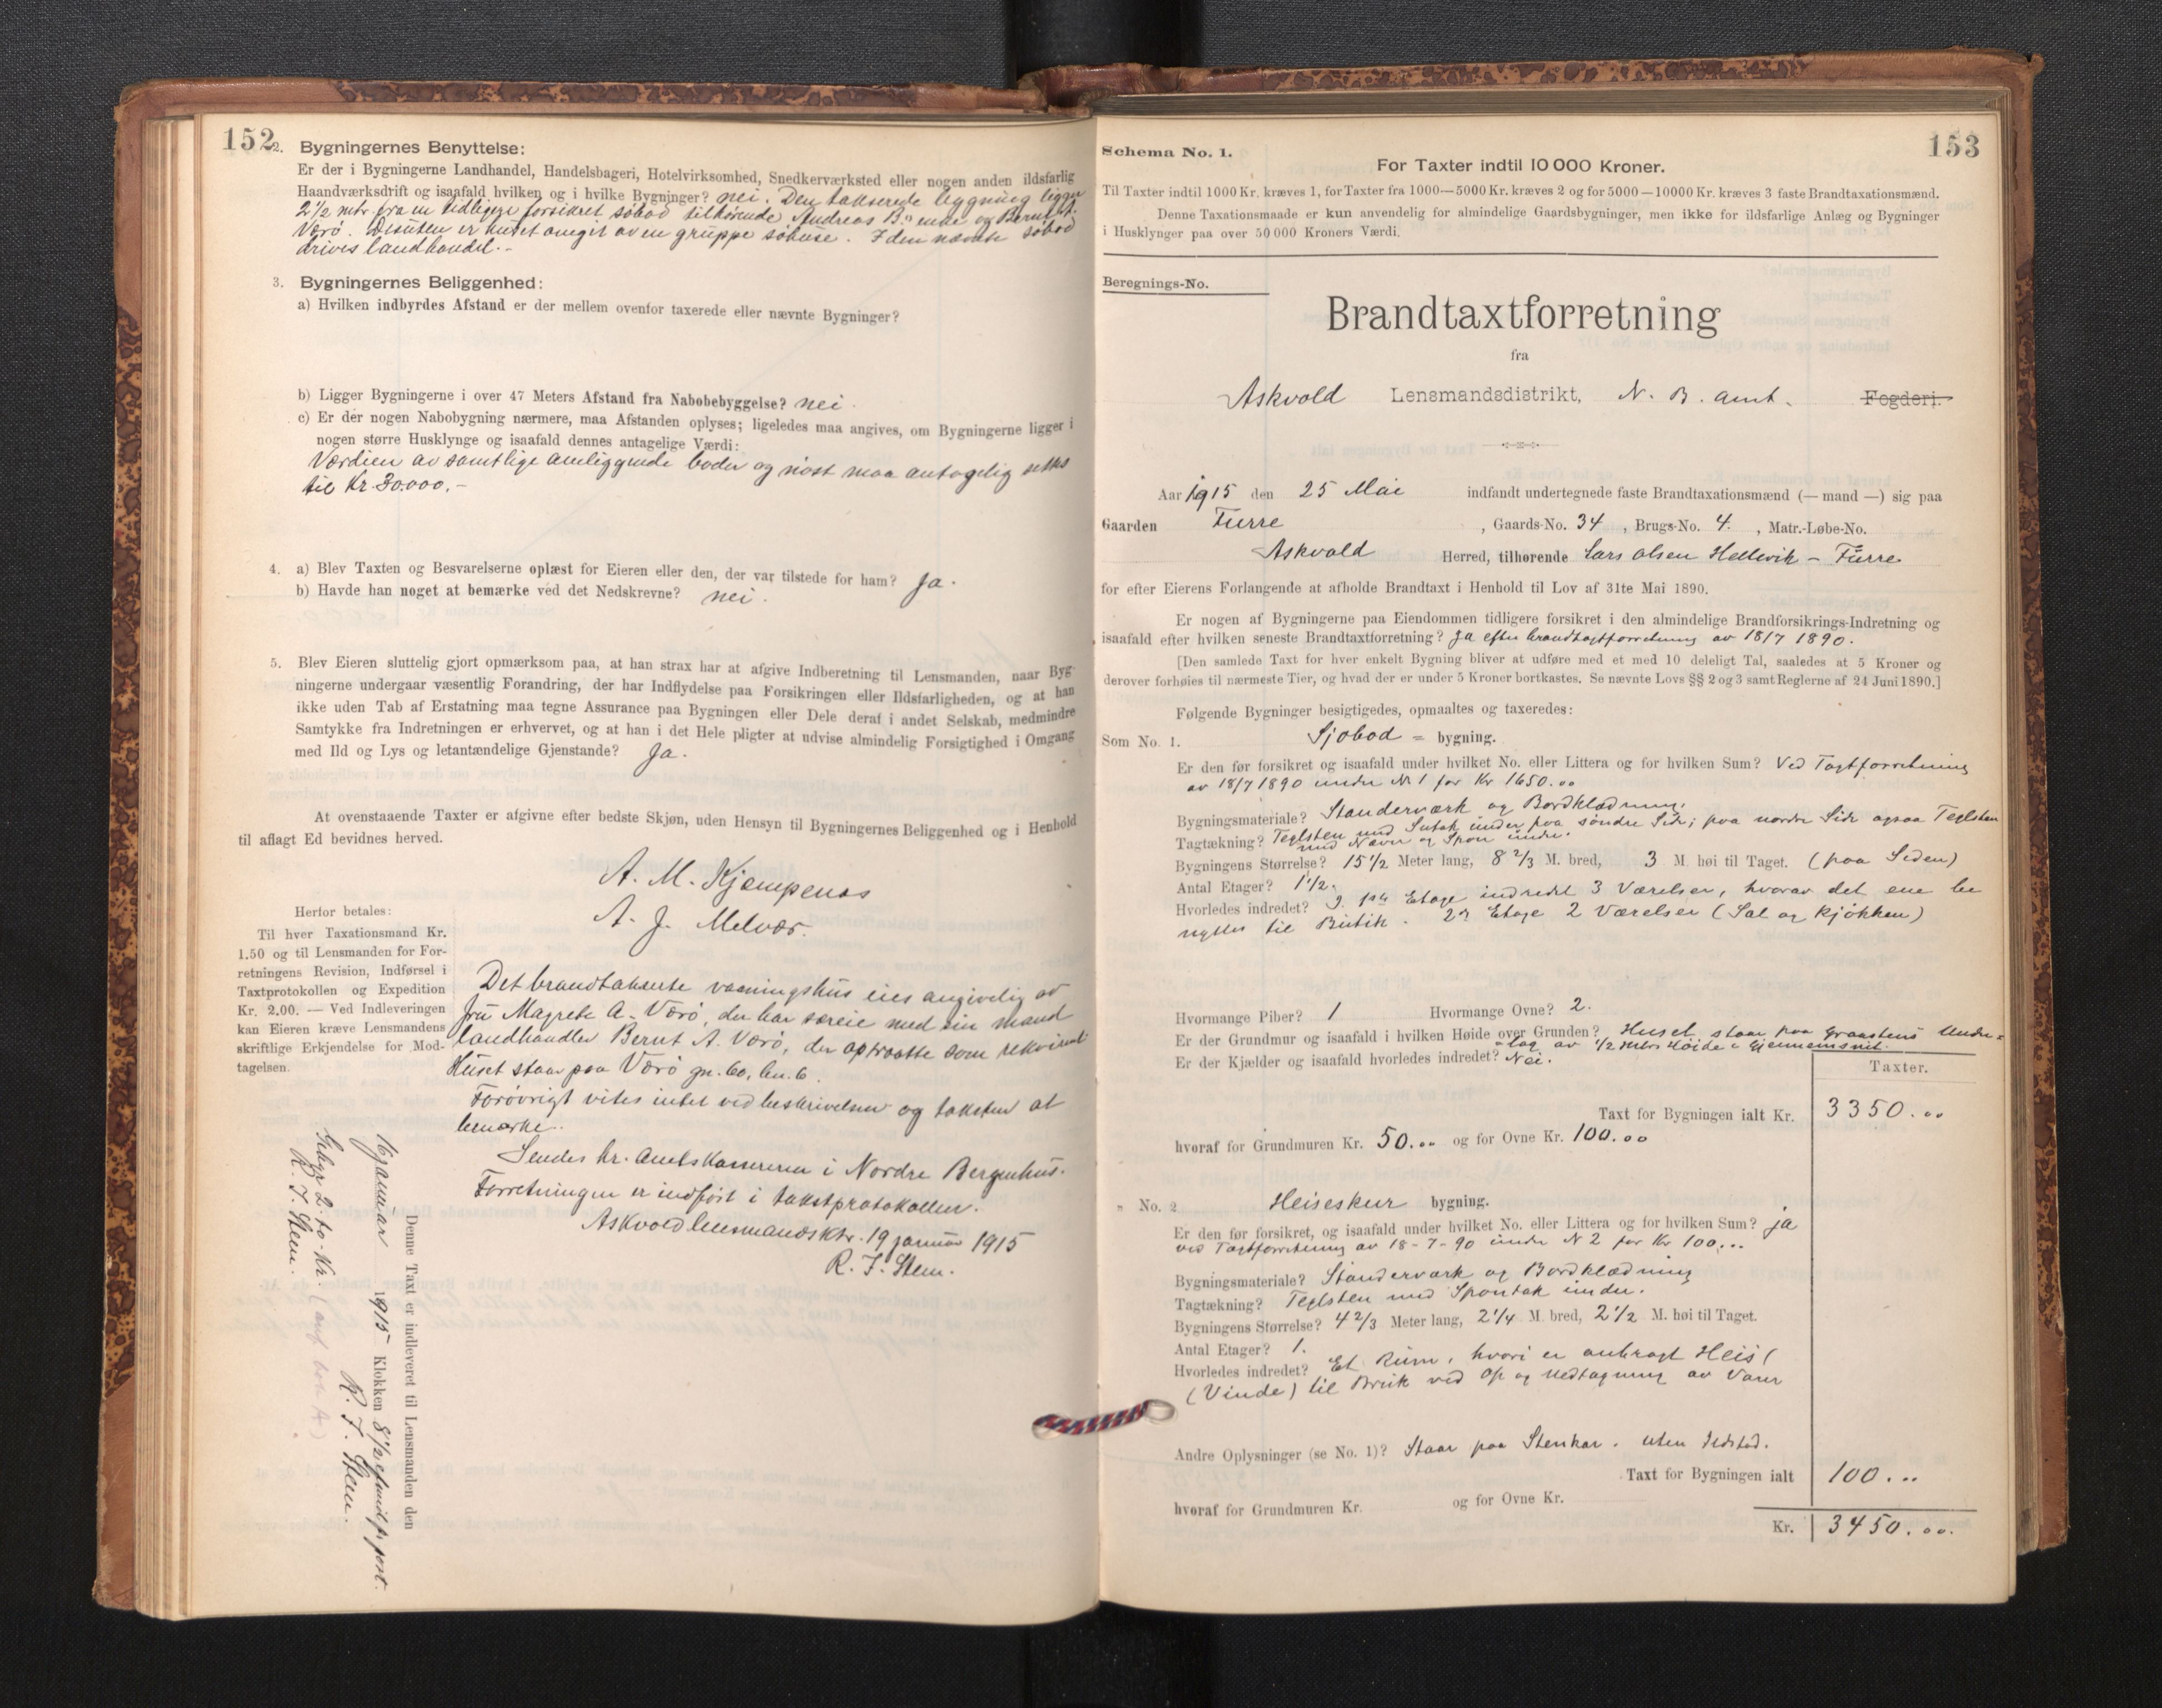 152
2. Bygningernes Benyttelse:
Er der i Bygningerne Landhandel, Handelsbageri, Hotelvirksomhed, Snedkerværksted eller nogen anden ildsfarlig
Haandværksdrift og isaafald hvilken og i hvilke Bygninger? nei. Den takserede bygning ligger
2 1/2 mtr. fra en tidligere forsikret søbod tilhørende Andreas B. og Bernt A.
Værø. Desuten er huset omgit av en gruppe søhuse. I den nævnte søbod
drives landhandel.-
3. Bygningernes Beliggenhed:
a) Hvilken indbyrdes Afstand er der mellem ovenfor taxerede eller nævnte Bygninger?
b) Ligger Bygningerne i over 47 Meters Afstand fra Nabobebyggelse? nei.
c) Er der nogen Nabobygning nærmere, maa Afstanden oplyses; ligeledes maa angives, om Bygningerne ligger i
nogen større Husklynge og isaafald dennes antagelige Værdi:
Værdien av samtlige omliggende boder og nøst maa antagelig settes
til Kr. 30.000,-
4. a) Blev Taxten og Besvarelserne oplæst for Eieren eller den, der var tilstede for ham? Ja.
b) Havde han noget at bemærke ved det Nedskrevne? nei.
5. Blev Eieren sluttelig gjort opmærksom paa, at han strax har at afgive Indberetning til Lensmanden, naar Byg-
ningerne undergaar væsentlig Forandring, der har Indflydelse paa Forsikringen eller Ildsfarligheden, og at han
ikke uden Tab af Erstatning maa tegne Assurance paa Bygningen eller Dele deraf i andet Selskab, medmindre
Samtykke fra Indretningen er erhvervet, og at han i det Hele pligter at udvise almindelig Forsigtighed i Omgang
med Ild og Lys og letantændelige Gjenstande? Ja.
At ovenstaaende Taxter er afgivne efter bedste Skjøn, uden Hensyn til Bygningernes Beliggenhed og i Henhold
til aflagt Ed bevidnes herved.
A. M. Kjempenes
A. J. Melvær.
Herfor betales:
Til hver Taxationsmand Kr.
1.50 og til Lensmanden for For-
retningens Revision, Indførsel i
Taxtprotokollen og Expedition
Kr. 2.00. — Ved Indleveringen
kan Eieren kræve Lensmandens
skriftlige Erkjendelse for Mod-
tagelsen.
Det brandtakserte vaaningshus eies angivelig av
fru Magrete A. Værø, der har særeie med sin mand
landhandler Bernt A. Værø, der optraatte som rekvirent
Huset staar paa Værø gn. 60, bn. 6.
Forøvrigt vites intet ved beskrivelsen og taksten at
bemerke.
Sendes hr. Amtskasereren i Nordre Bergenhus.
Forretningen er indført i takstprotokollen.
Askvold lensmandsktr. 19 januar 1915
R. J. Steen.
Denne Taxt er indleveret til Lensmanden den
16 januar 1915 Klokken 8 1/2 efmid p. post.
R. J. Steen.
Gebyr 2. to Kr.
R. J. Steen.
153
Schema No. 1.
For Taxter indtil 10 000 Kroner.
Til Taxter indtil 1000 Kr. kræves 1, for Taxter fra 1000—5000 Kr. kræves 2 og for 5000—10000 Kr. kræves 3 faste Brandtaxationsmænd.
Denne Taxationsmaade er kun anvendelig for almindelige Gaardsbygninger, men ikke for ildsfarlige Anlæg og Bygninger
i Husklynger paa over 50 000 Kroners Værdi.
Beregnings-No.
Brandtaxtforretning
fra
Askvold Lensmandsdistrikt, N. B. amt. Fogderi.
Aar 1915 den 25 Mai indfandt undertegnede faste Brandtaxationsmænd (— mand —) sig paa
Gaarden Furre, Gaards-No. 34, Brugs-No. 4., Matr.-Løbe-No.
Askvold Herred, tilhørende Lars Olsen Hellevik - Furre
for efter Eierens Forlangende at afholde Brandtaxt i Henhold til Lov af 31te Mai 1890.
Er nogen af Bygningerne paa Eiendommen tidligere forsikret i den almindelige Brandforsikrings-Indretning og
isaafald efter hvilken seneste Brandtaxtforretning? Ja efter brandtaxtforretning av 18/7 1890.
[Den samlede Taxt for hver enkelt Bygning bliver at udføre med et med 10 deleligt Tal, saaledes at 5 Kroner og
derover forhøies til nærmeste Tier, og hvad der er under 5 Kroner bortkastes. Se nævnte Lovs §§ 2 og 3 samt Reglerne af 24 Juni 1890.]
Følgende Bygninger besigtigedes, opmaaltes og taxeredes:
Som No. 1. Sjøbod = bygning.
Er den før forsikret og isaafald under hvilket No. eller Littera og for hvilken Sum? Ved Taxtforretning
av 18/7 1890 under N 1 for Kr 1650.00
Bygningsmateriale? Standerværk og Bordklædning.
Tagtækning? Teglsten med Sutak under paa søndre Side; paa nordre Side ogsaa Teglsten
med Næver og Spon under.
Bygningens Størrelse? 15 1/2 Meter lang, 8 2/3 M. bred, 3 M. høi til Taget. (paa Siden)
Antal Etager? 1 1/2.
Hvorledes indredet? I 1ste Etage indredet 3 Værelser, hvorav det ene be
nyttes til Butik. 2den Etage 2 Værelser (Sal og Kjøkken)
Hvormange Piber? 1 Hvormange Ovne? 2.
Er der Grundmur og isaafald i hvilken Høide over Grunden? Huset staar paa Graastens Under=
lag av 1/2 mtrs Høide i Gjennemsnit.
Er der Kjælder og isaafald hvorledes indredet? Nei.
Taxter.
Taxt for Bygningen ialt Kr. 3350.00
hvoraf for Grundmuren Kr. 50.00 og for Ovne Kr. 100.00
" No. 2 Heiseskur bygning.
Er den før forsikret, og isaafald under hvilket No. eller Littera og for hvilken Sum? ja
ved Taxtforretning av 18-7-90 under N 2 for Kr 100...
Bygningsmateriale? Standerværk og Bordklædning
Tagtækning? Teglsten med Spontak under.
Bygningens Størrelse? 4 2/3 Meter lang, 2 1/4 M. bred, 2 1/2 M. høi til Taget.
Antal Etager? 1.
Hvorledes indredet? Et Rum, hvori er anbragt Heis (
(Vinde) til Bruk ved Op og Nedtagning av Varer
Andre Oplysninger (se No. 1)? Staar paa Stenkar. uten Ildsted.
Taxt for Bygningen ialt 100...
hvoraf for Grundmuren Kr. og for Ovne Kr.
Kr. 3450.00.